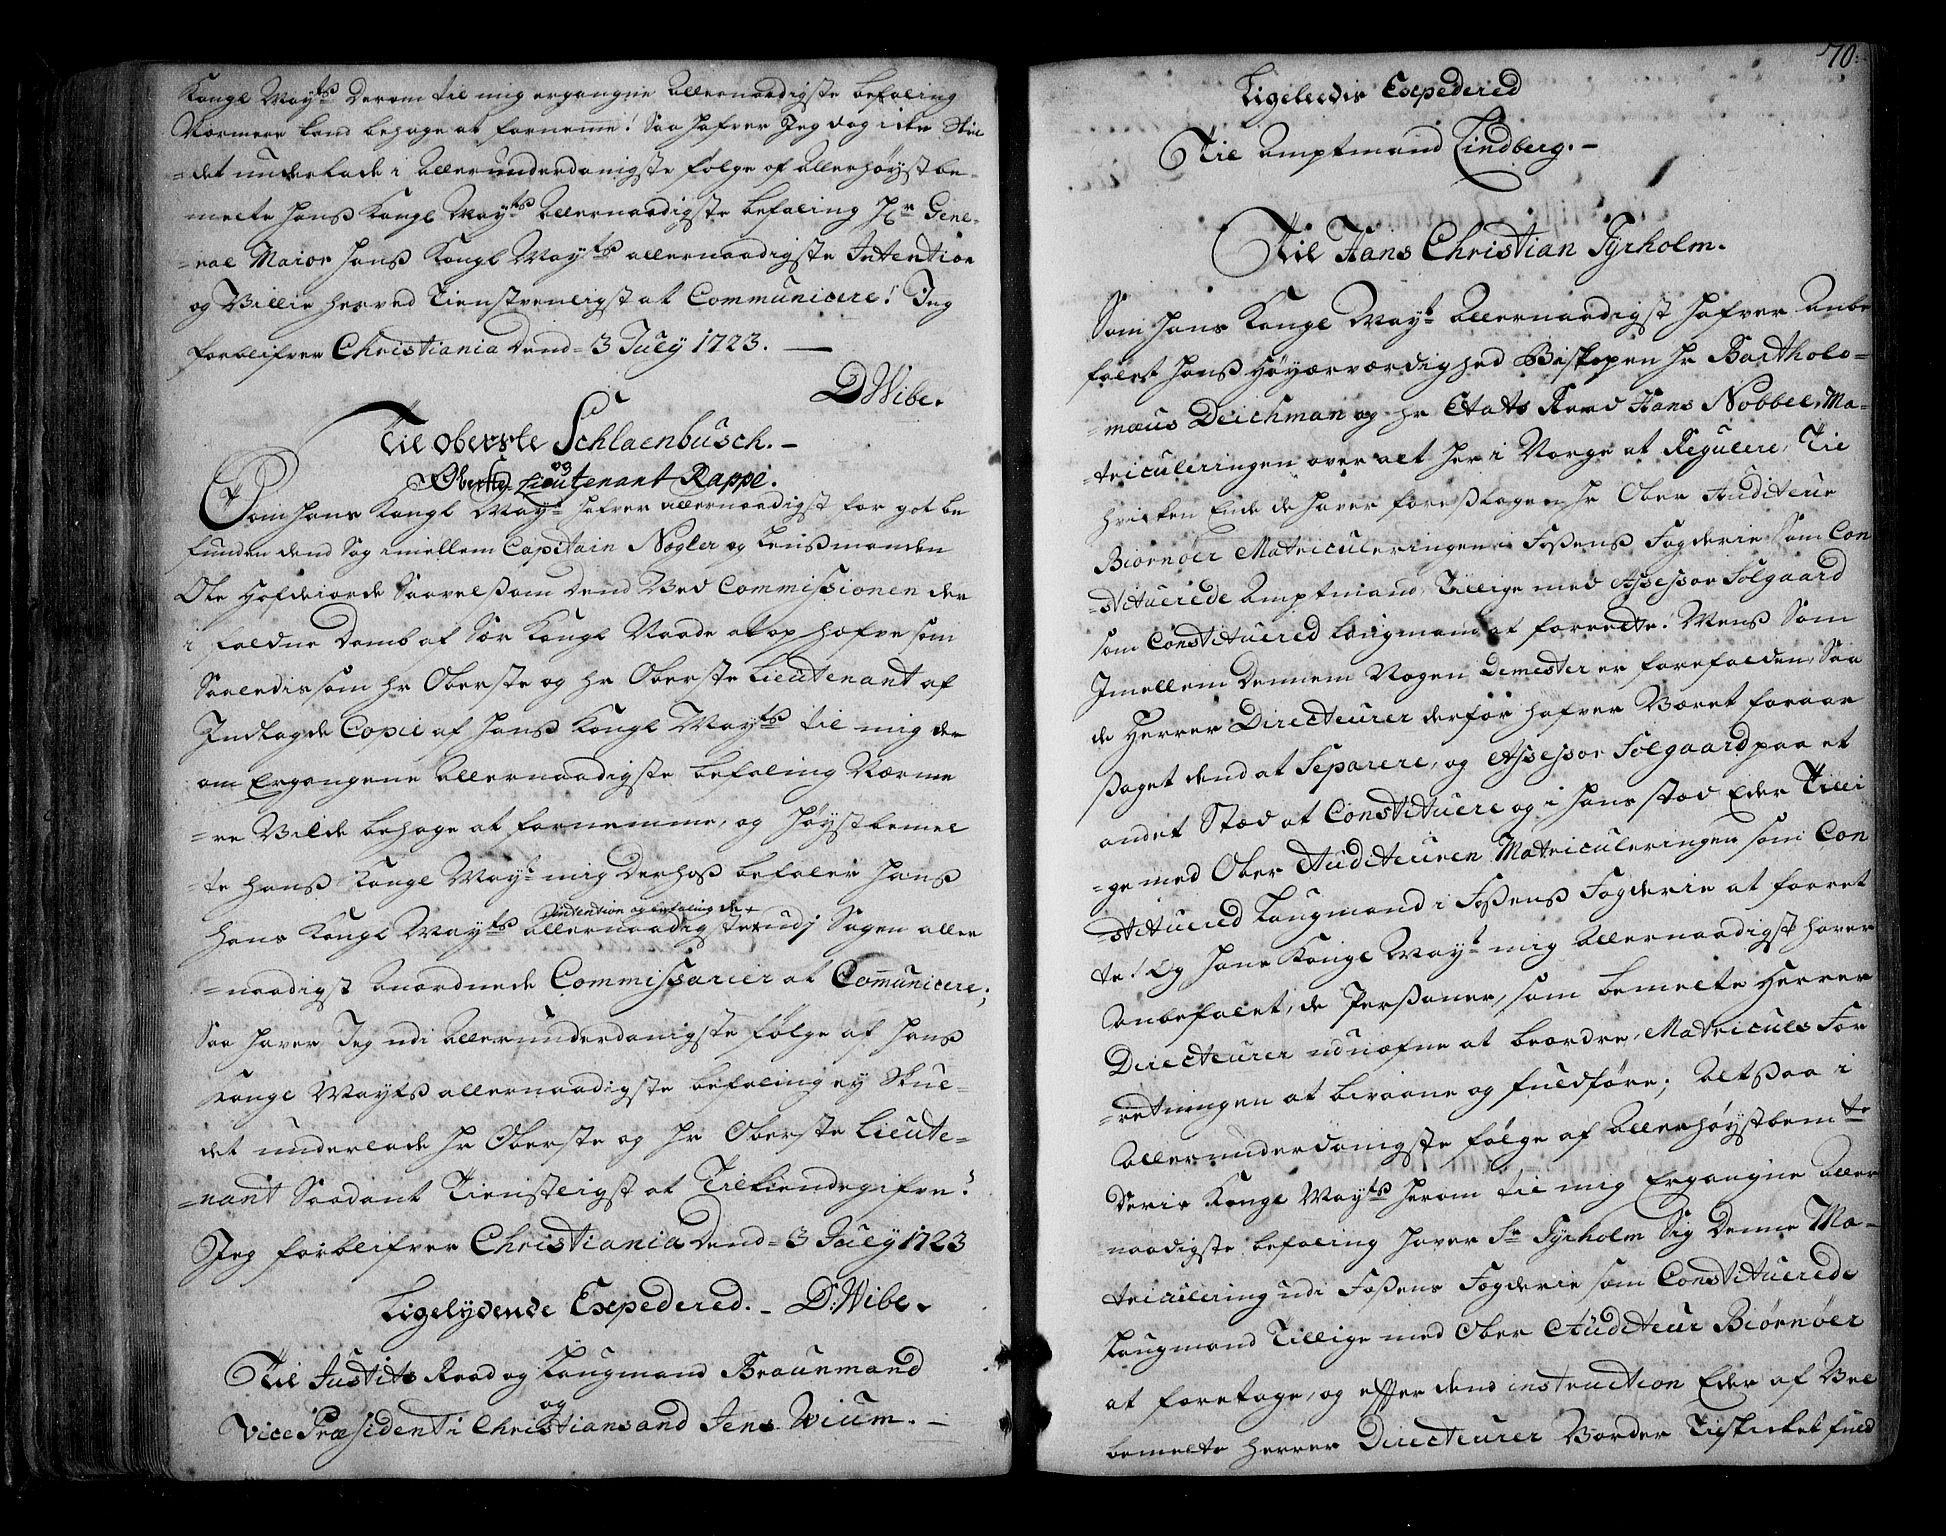 Kongl Mayts derom til mig ergangne allernaadigste befaling
Nærmere kand behage at fornemme! Saa hafver Jeg dog icke Skul
=det underlade i allerunderdanigste følge af allerhøystbe-
melte hans Kongl Mayts allernaadigste befaling Hr Gene-
=ral Maior hans Kongl Mayts allernaadigste Intention
og Villie herved tienstvenligst at Communicere! Jeg
forblifver Christiania dend= 3 July 1723. —
DWibe.
Til Oberste Schlaenbusch. —
og
Oberste Lieutenant Rappe.
Som hans Kongl Mayt hafver allernaadigst for got be
funden dend Sag imellem Capitain Nøgler og Lensmanden
Ole Hofde giorde Saavelsom dend ved Commissionen der
i faldne domb at for Kongl Naade at ophæfve som
Saaledis som hr Oberste og hr Oberste Lieutenant af
Indlagde Copie af hans Kongl Mayts til mig der
om Ergangene allernaadigste befaling Nærme
=re Vilde behage at fornemme, og høystbemel
=te hans Kongl Mayt mig derhos befaler hans
intention og befaling de
hans Kongl Mayts allernaadigste udj Sagen aller
=naadigst anordnede Commissarier at Communicere;
Saa haver Jeg udi allerunderdanigste følge af hans
Kongl Mayts allernaadigste befaling ey Skul-
det underlade hr Oberste og hr Oberste Lieute-
=nant Saadant tienstligst at Tilkiendegifve!
Jeg forblifver Christiania dend= 3 July 1723
Ligelydende Expedered. – D:Wibe.
Til Justits Raad og Laugmand Braunmand
og
Vice Præsident i Christiansand Jens Wium. —
70.
Ligeledis Expedered
Til Amptmand Lindberg. —
Til Hans Christian Tyrholm.
Som hans Kongl Mayt allernaadigst hafver anbe
falet hans Høyærværdighed Biskopen hr Bartholo=
=mæus Deichman og hr Etats Raad Hans Nobbel, Ma-
=triculeringen over alt her i Norge at Regulere, Til
hvilken Ende de haver foreslagen hr Ober Auditeur
Biørnøer Matriculeringen i Fosens Fogderie Som Con
=stituerede Amptmand, Tillige med Assessor Solgaard
som Constituered Laugmand at forrette. Mens Som
Imellem dennem Nogen Demesler er forefalden, Saa
de Herrer Directeurer derfor hafver Været foraar
saget dend at Separere, og Assessor Solgaard paa et
andet Stæd at Constituere og i hans stæd Eder Tilli
=ge med Ober Auditeuren Matriculeringen som Con
=stituered Laugmand i Fosens Fogderie at forret
te! Og hans Kongl Mayt mig allernaadigst haver
anbefalet, de Personer, som bemelte Herrer
Directeurer udnæfne at beordre, Matriculs For
=retningen at bivaane og fuldføre; Altsaa i
allerunderdanigste følge af allerhøystbemte
deris Kongl Mayts herom til mig Ergangne aller
=naadigste befaling haver Sr Tyrholm Sig denne Ma-
triculering udi Fosens Fogderie som Constituerede
Laugmand Tillige med Ober Auditeur Biørnøer
at foretage, og effter dend instruction Eder af Vel
bemelte Herrer Directeurer Vorder Tilskicket fuld